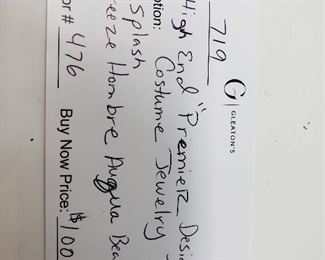 719
G
GLEATON'S
ption:
High End "Premier Desi
Costume Jewelry
Splash
reeze Hombre Auqua Bea
or# 476
Buy Now Price: $100